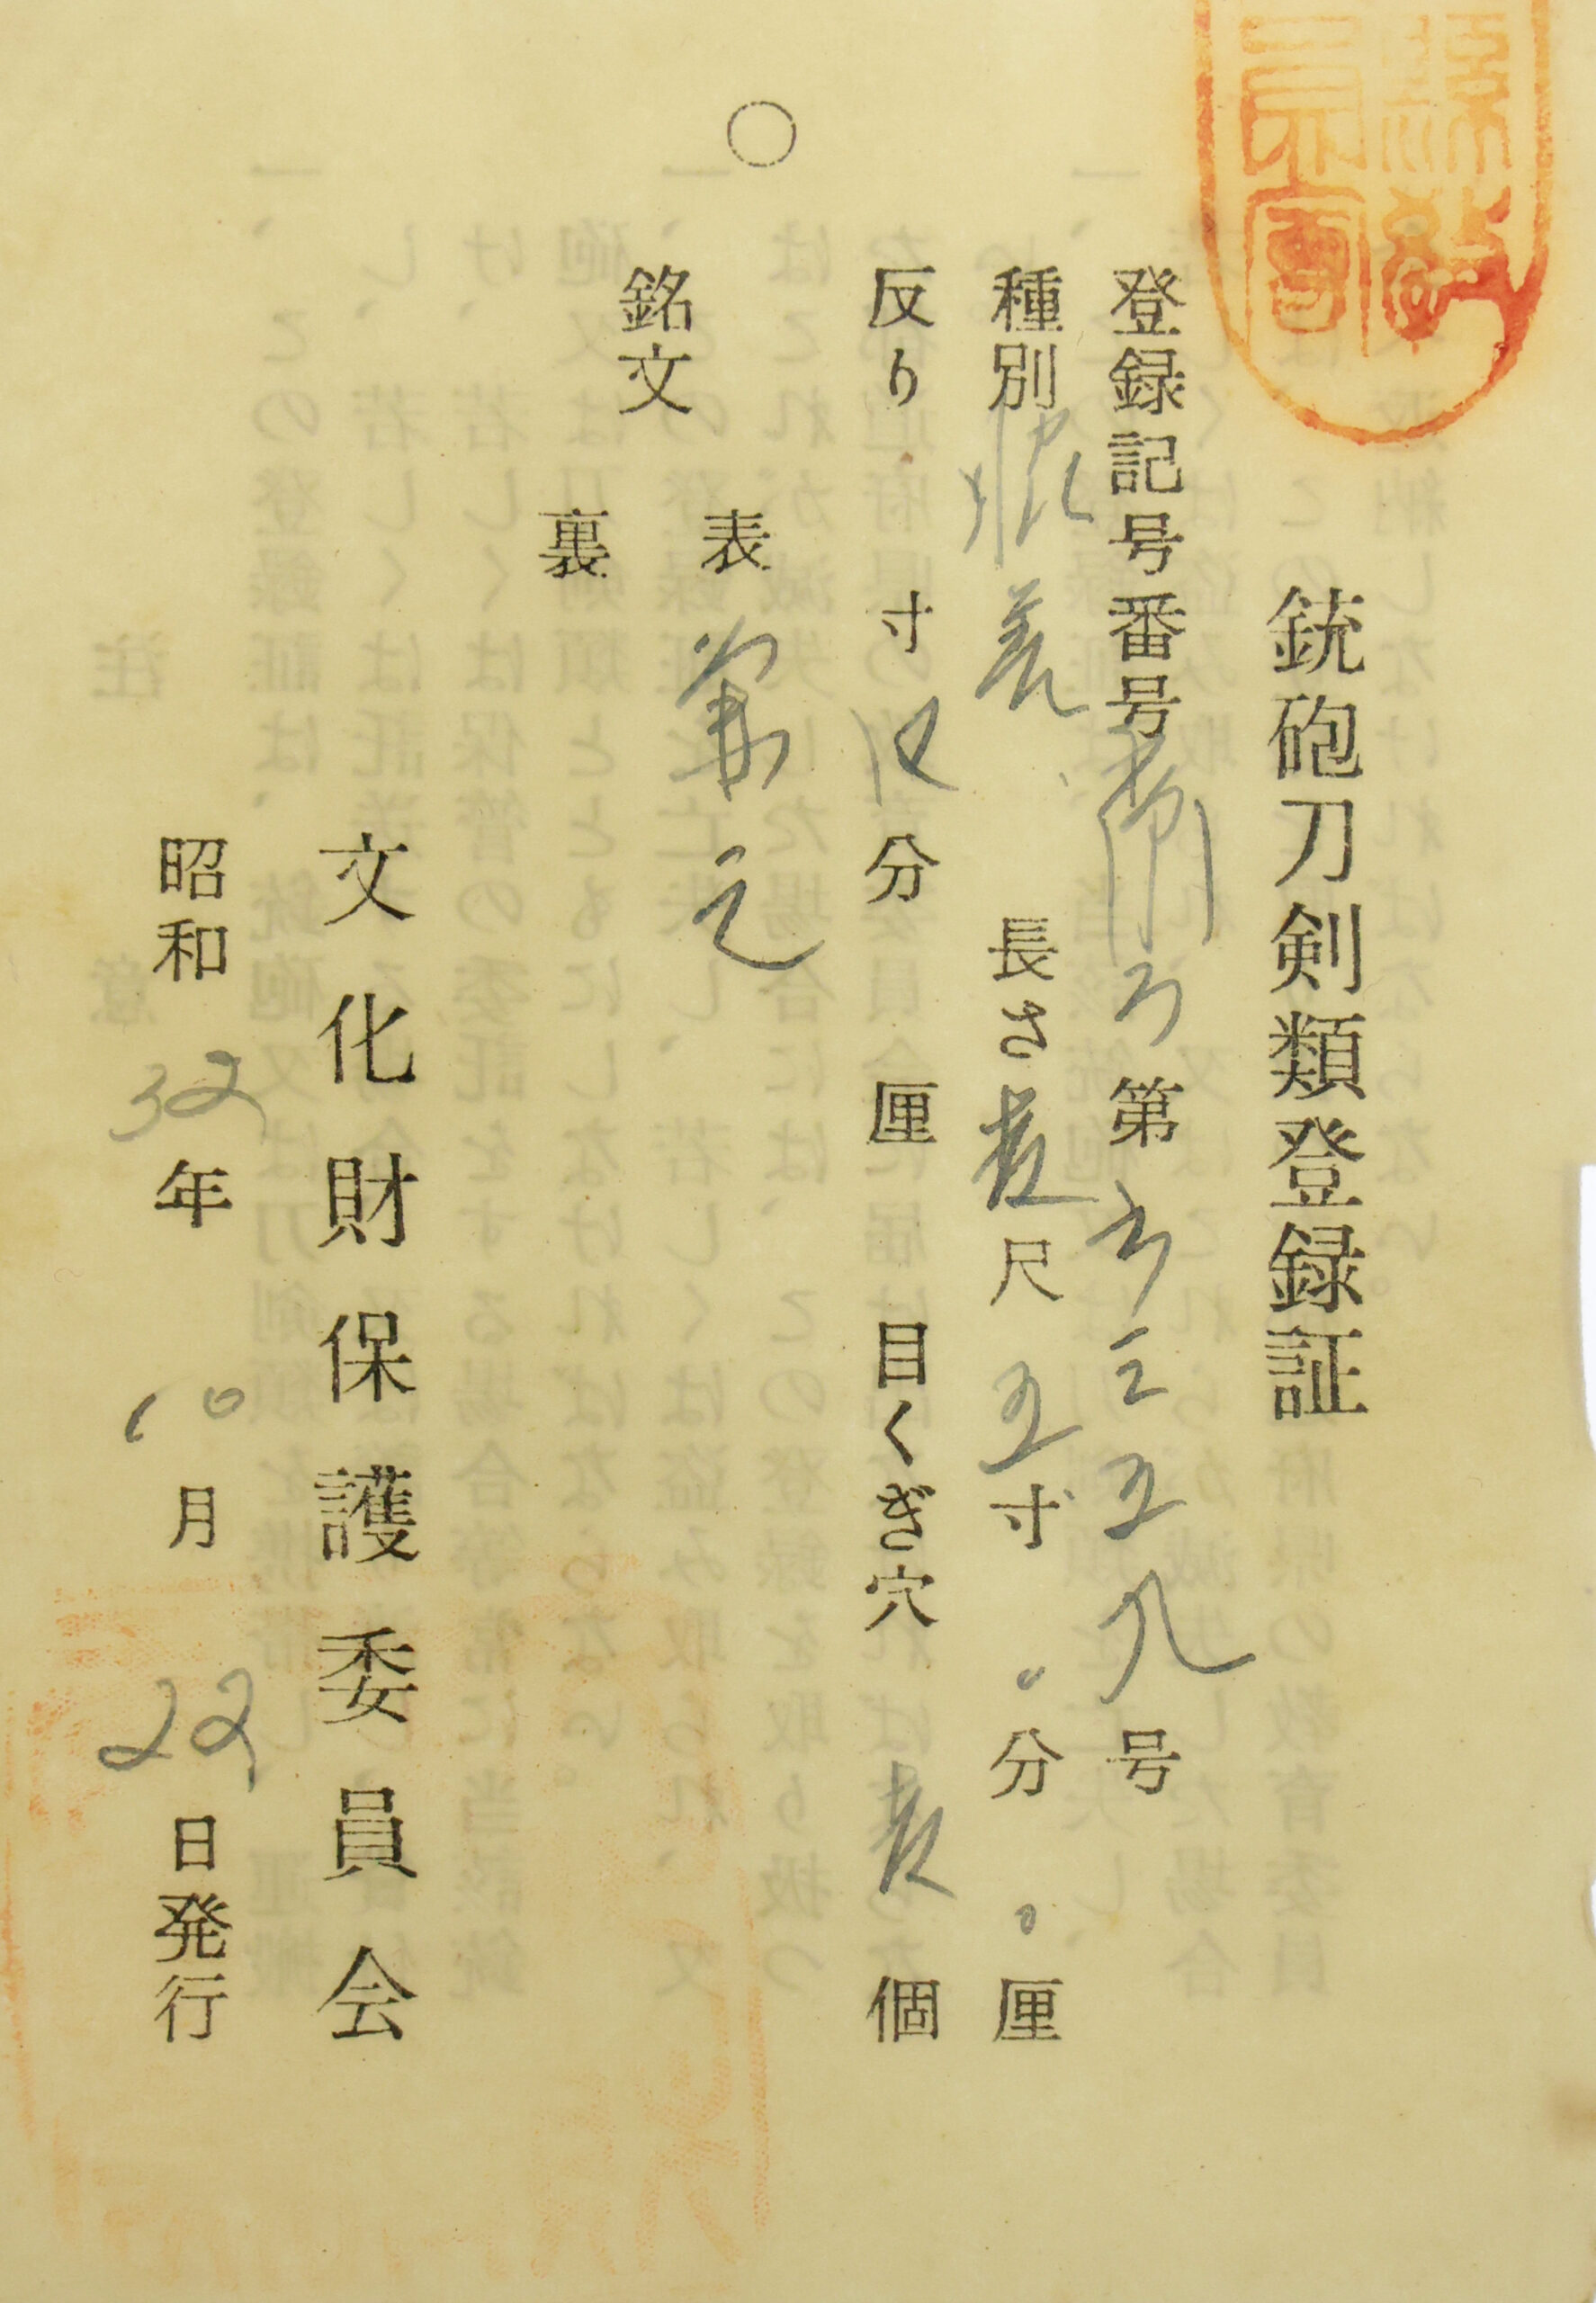 銃砲刀剣類登録証
登録記号番号 第 三五八号
種別 脇差 長さ壱尺五寸〇分〇厘
反り 寸 分 厘 目くぎ穴 壱個
銘文
表 兼之
裏
文化財保護委員会
昭和32年10月22日発行